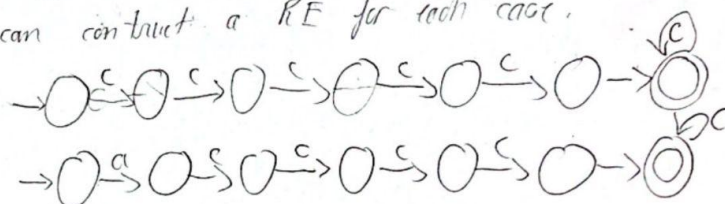 can construct a RE for each case.
c c c c c c
a c c c c c